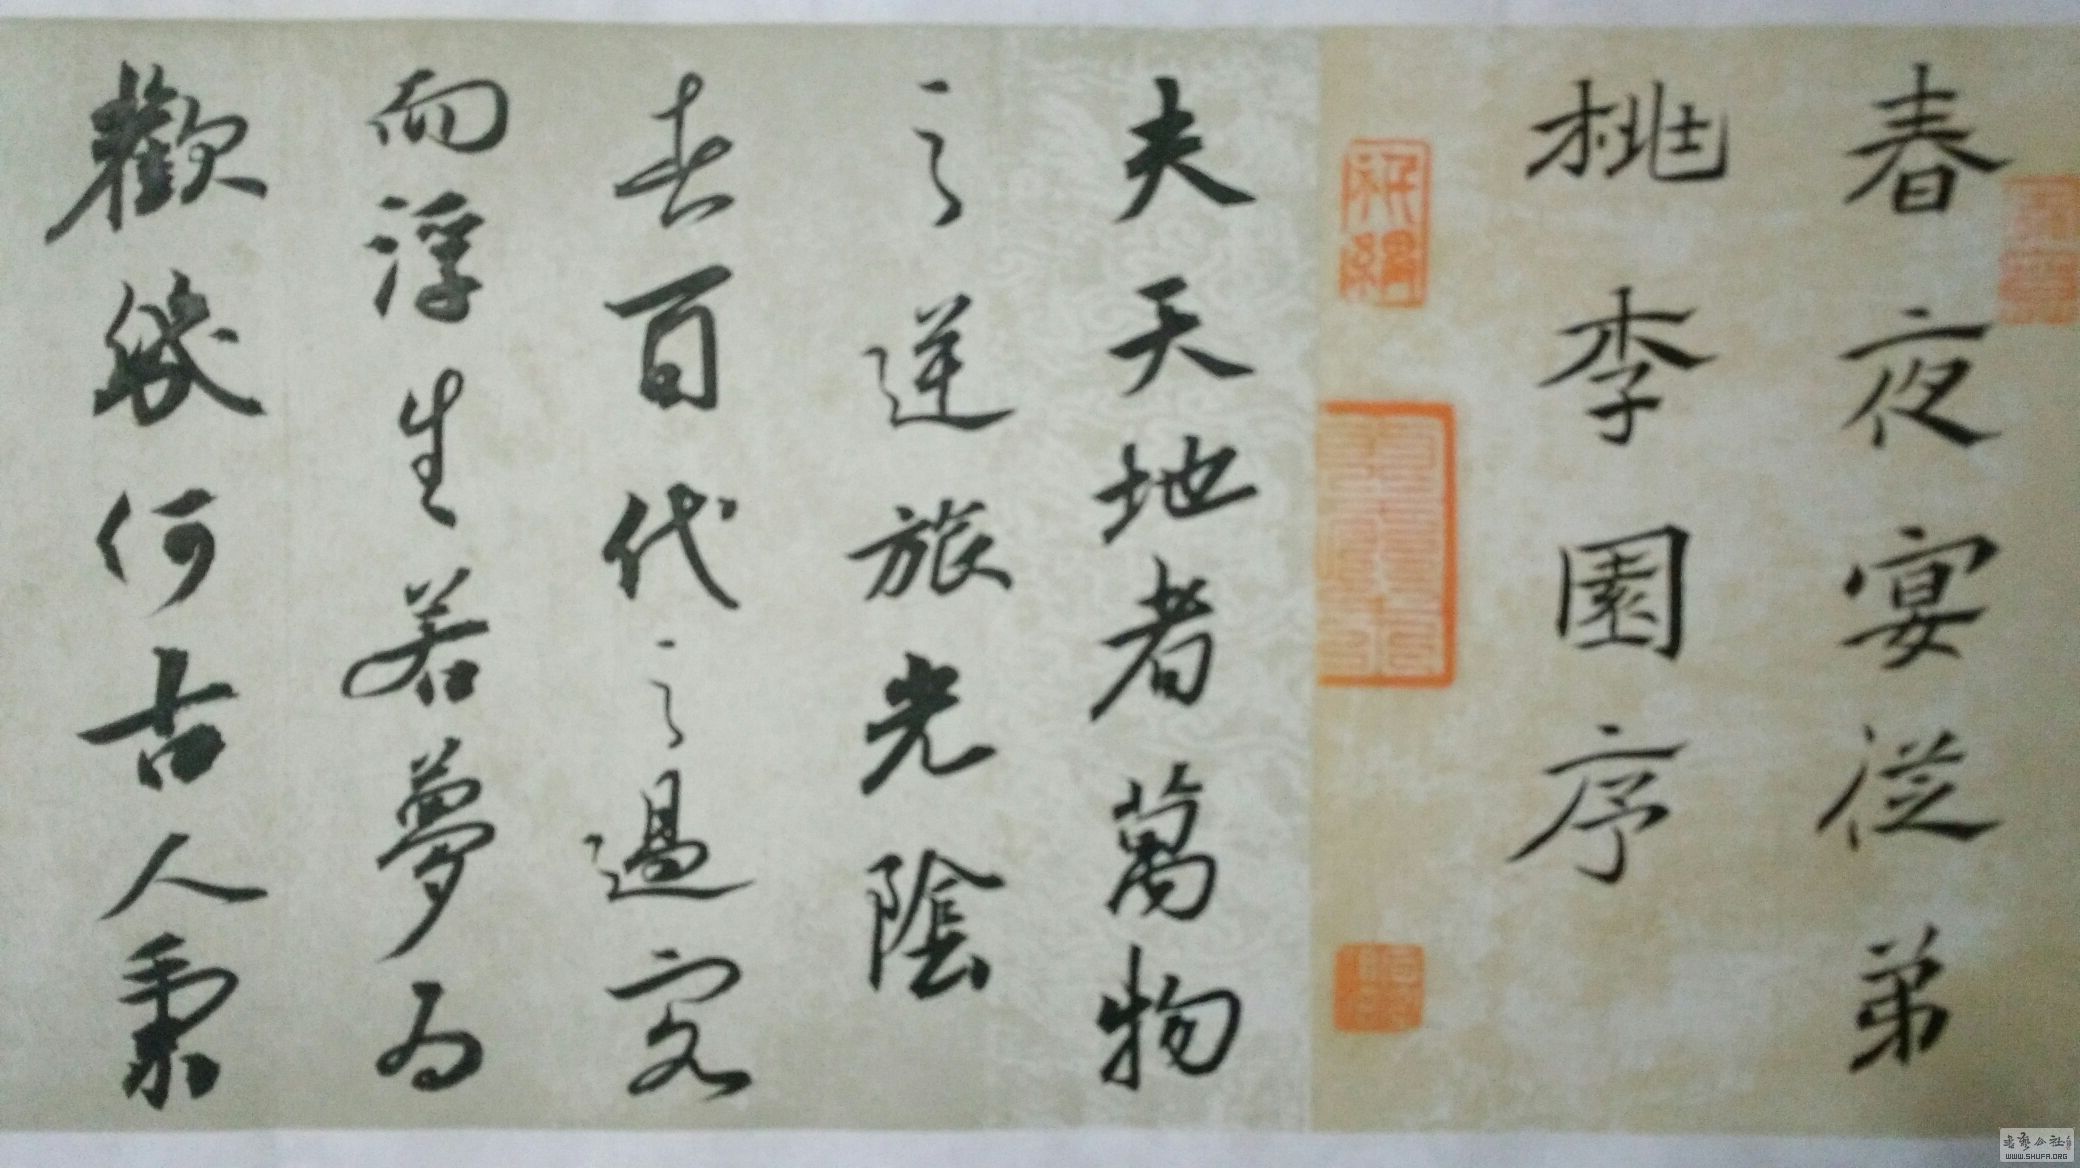 春夜宴從弟
桃李園序
夫天地者萬物
之逆旅光陰
者百代之過客
而浮生若夢為
歡幾何古人秉
书法公社
WWW.SHUFA.ORG